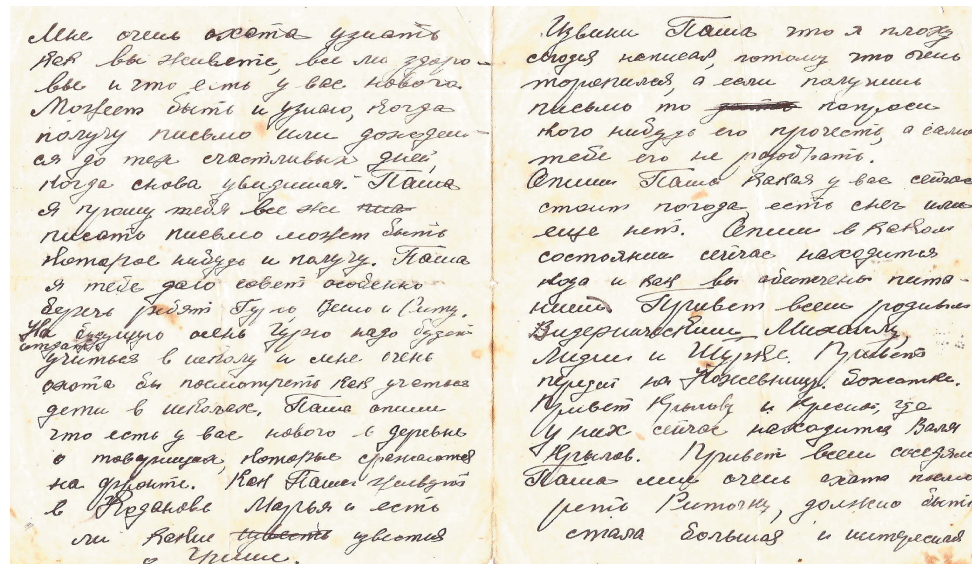 Мне очень охота узнать
как вы живете, все ли здоро-
вы и что есть у вас нового.
Может быть и узнаю, когда
получу письмо или дождем-
ся до тех счастливых дней,
когда снова увидимся. Паша
я прошу тебя все же
писать письмо может быть
которое нибудь и получу. Паша
я тебе даю совет особенно
беречь ребят Гурю, Веню и Риту.
На будущую осень Гурю надо будет
отдать
учиться в школу и мне очень
охота бы посмотреть как учатся
дети в школах. Паша опиши
что есть у вас нового в деревне
о товарищах, которые сражаются
на фронте. Как Паша живут
в Марья и есть
ли какие известия
о Грише.
Извини Паша что я плохо
сегодня написал, потому что очень
торопился, а если получишь
письмо то попроси
кого нибудь его прочесть, а само
тебе его не разобрать.
Опиши Паша какая у вас сейчас
стоит погода есть снег или
еще нет. Опиши в каком
состоянии сейчас находится
и как вы обеспечены пита-
нием. Привет всем родным
Михаилу,
Лидии и Шурке. Привет
передай на божатке.
Привет Крылову и где
у них сейчас находится Валя
Крылов. Привет всем соседям
Паша мне очень охота посмо
реть Риточку, должно быть
стала большая и интересная